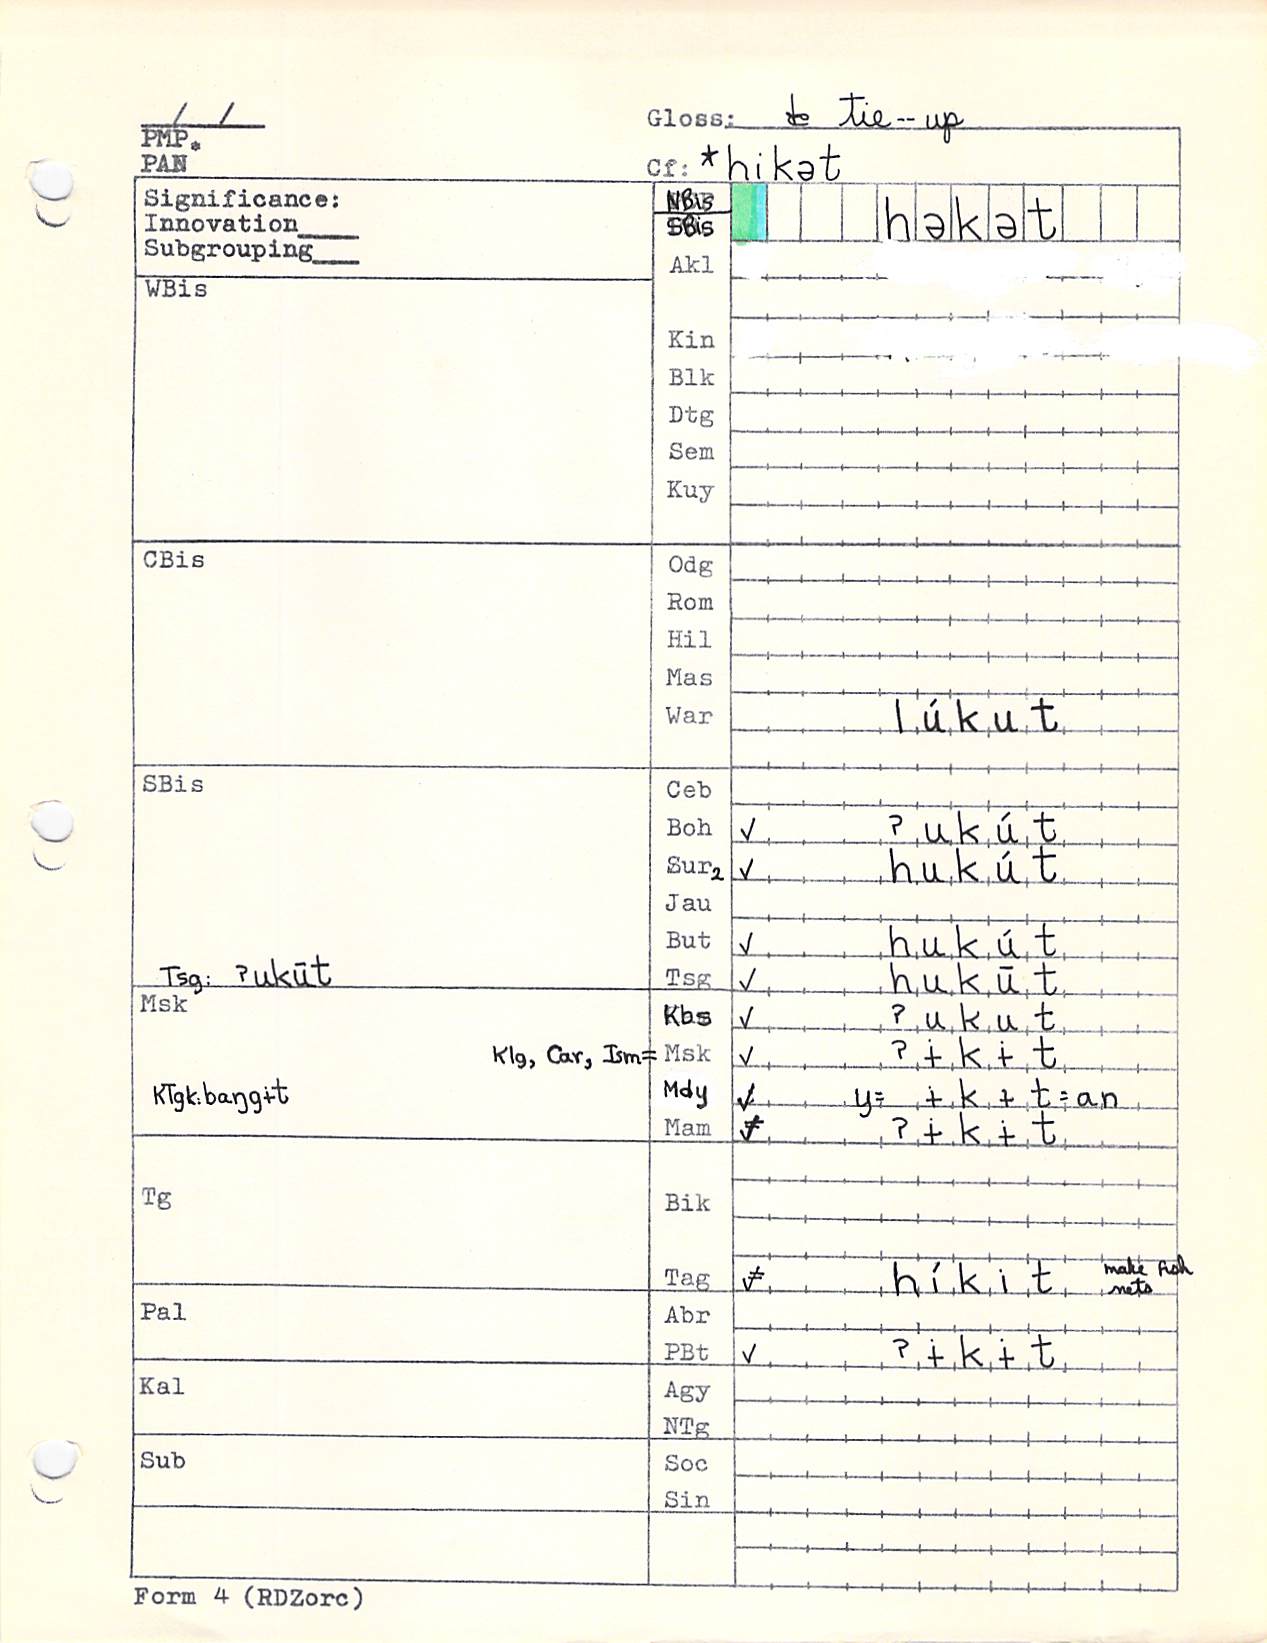 / /
Gloss: to tie--up
PMP.
PAN
Cf: *hikət
Significance:
Innovation____
Subgrouping___
NBis
SBis həkət
Akl
WBis
Kin
Blk
Dtg
Sem
Kuy
CBis
Odg
Rom
Hil
Mas
War lúkut
SBis
Ceb
Boh ✓ ʔukút
Sur₂ ✓ hukút
Jau
But ✓ hukút
Tsg: ʔukūt
Tsg ✓ hukūt
Msk
Kbs ✓ ʔukut
Klg, Car, Ism= Msk ✓ ʔɨkɨt
KTgk: baŋgɨt
Mdy ✓ y= ɨkɨt=an
Mam ✓ ʔɨkɨt
Tg
Bik
Tag ≠ híkit make fish nets
Pal
Abr
PBt ✓ ʔɨkɨt
Kal
Agy
NTg
Sub
Soc
Sin
Form 4 (RDZorc)